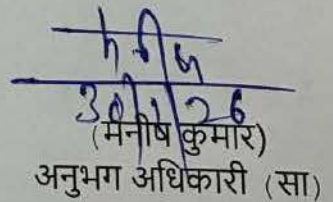 मनीष
30/1/26
(मनीष कुमार)
अनुभग अधिकारी (सा)